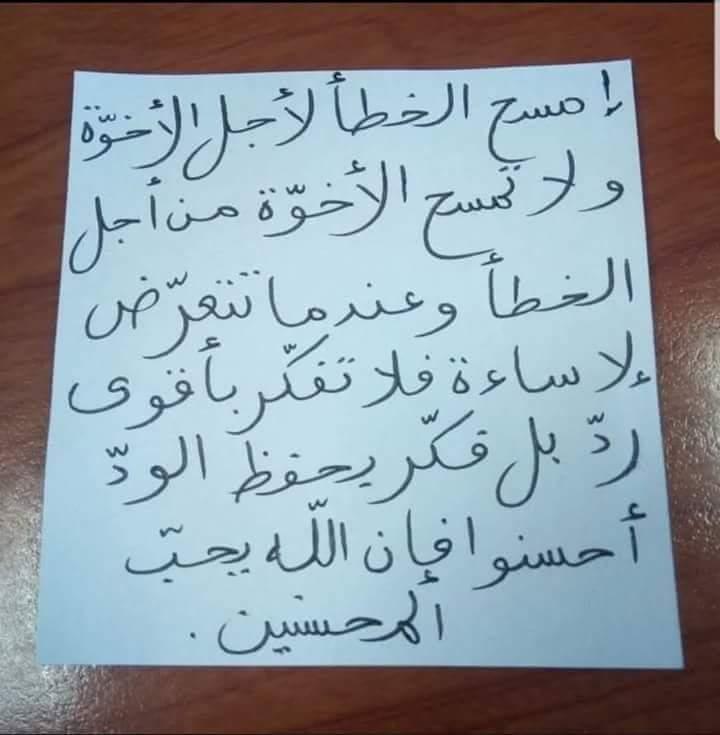 إمسح الخطأ لأجل الأخوّة
ولا تمسح الأخوّة من أجل
الخطأ وعندما تتعرّض
لإساءة فلا تفكّر بأقوى
ردّ بل فكّر يحفظ الودّ
أحسنوا فإن اللّه يحبّ
ألمحسنين .